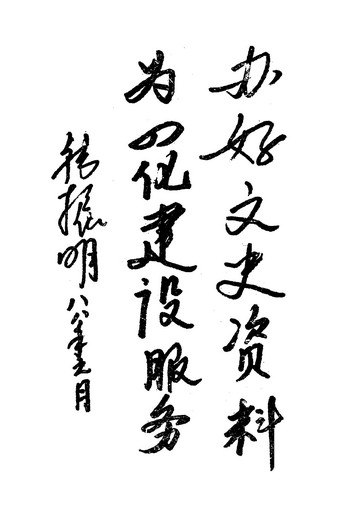 办好文史资料
为四化建设服务
张振明 八八年九月